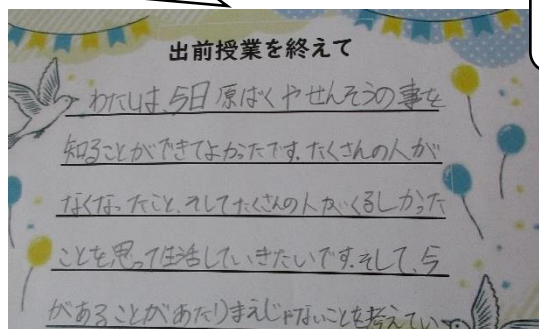 出前授業を終えて
わたしは、今日原ばくやせんそうの事を
知ることができてよかったです。たくさんの人が
なくなったこと、そしてたくさんの人がくるしかった
ことを思って生活していきたいです。そして、今
があることがあたりまえじゃないことを考えてい